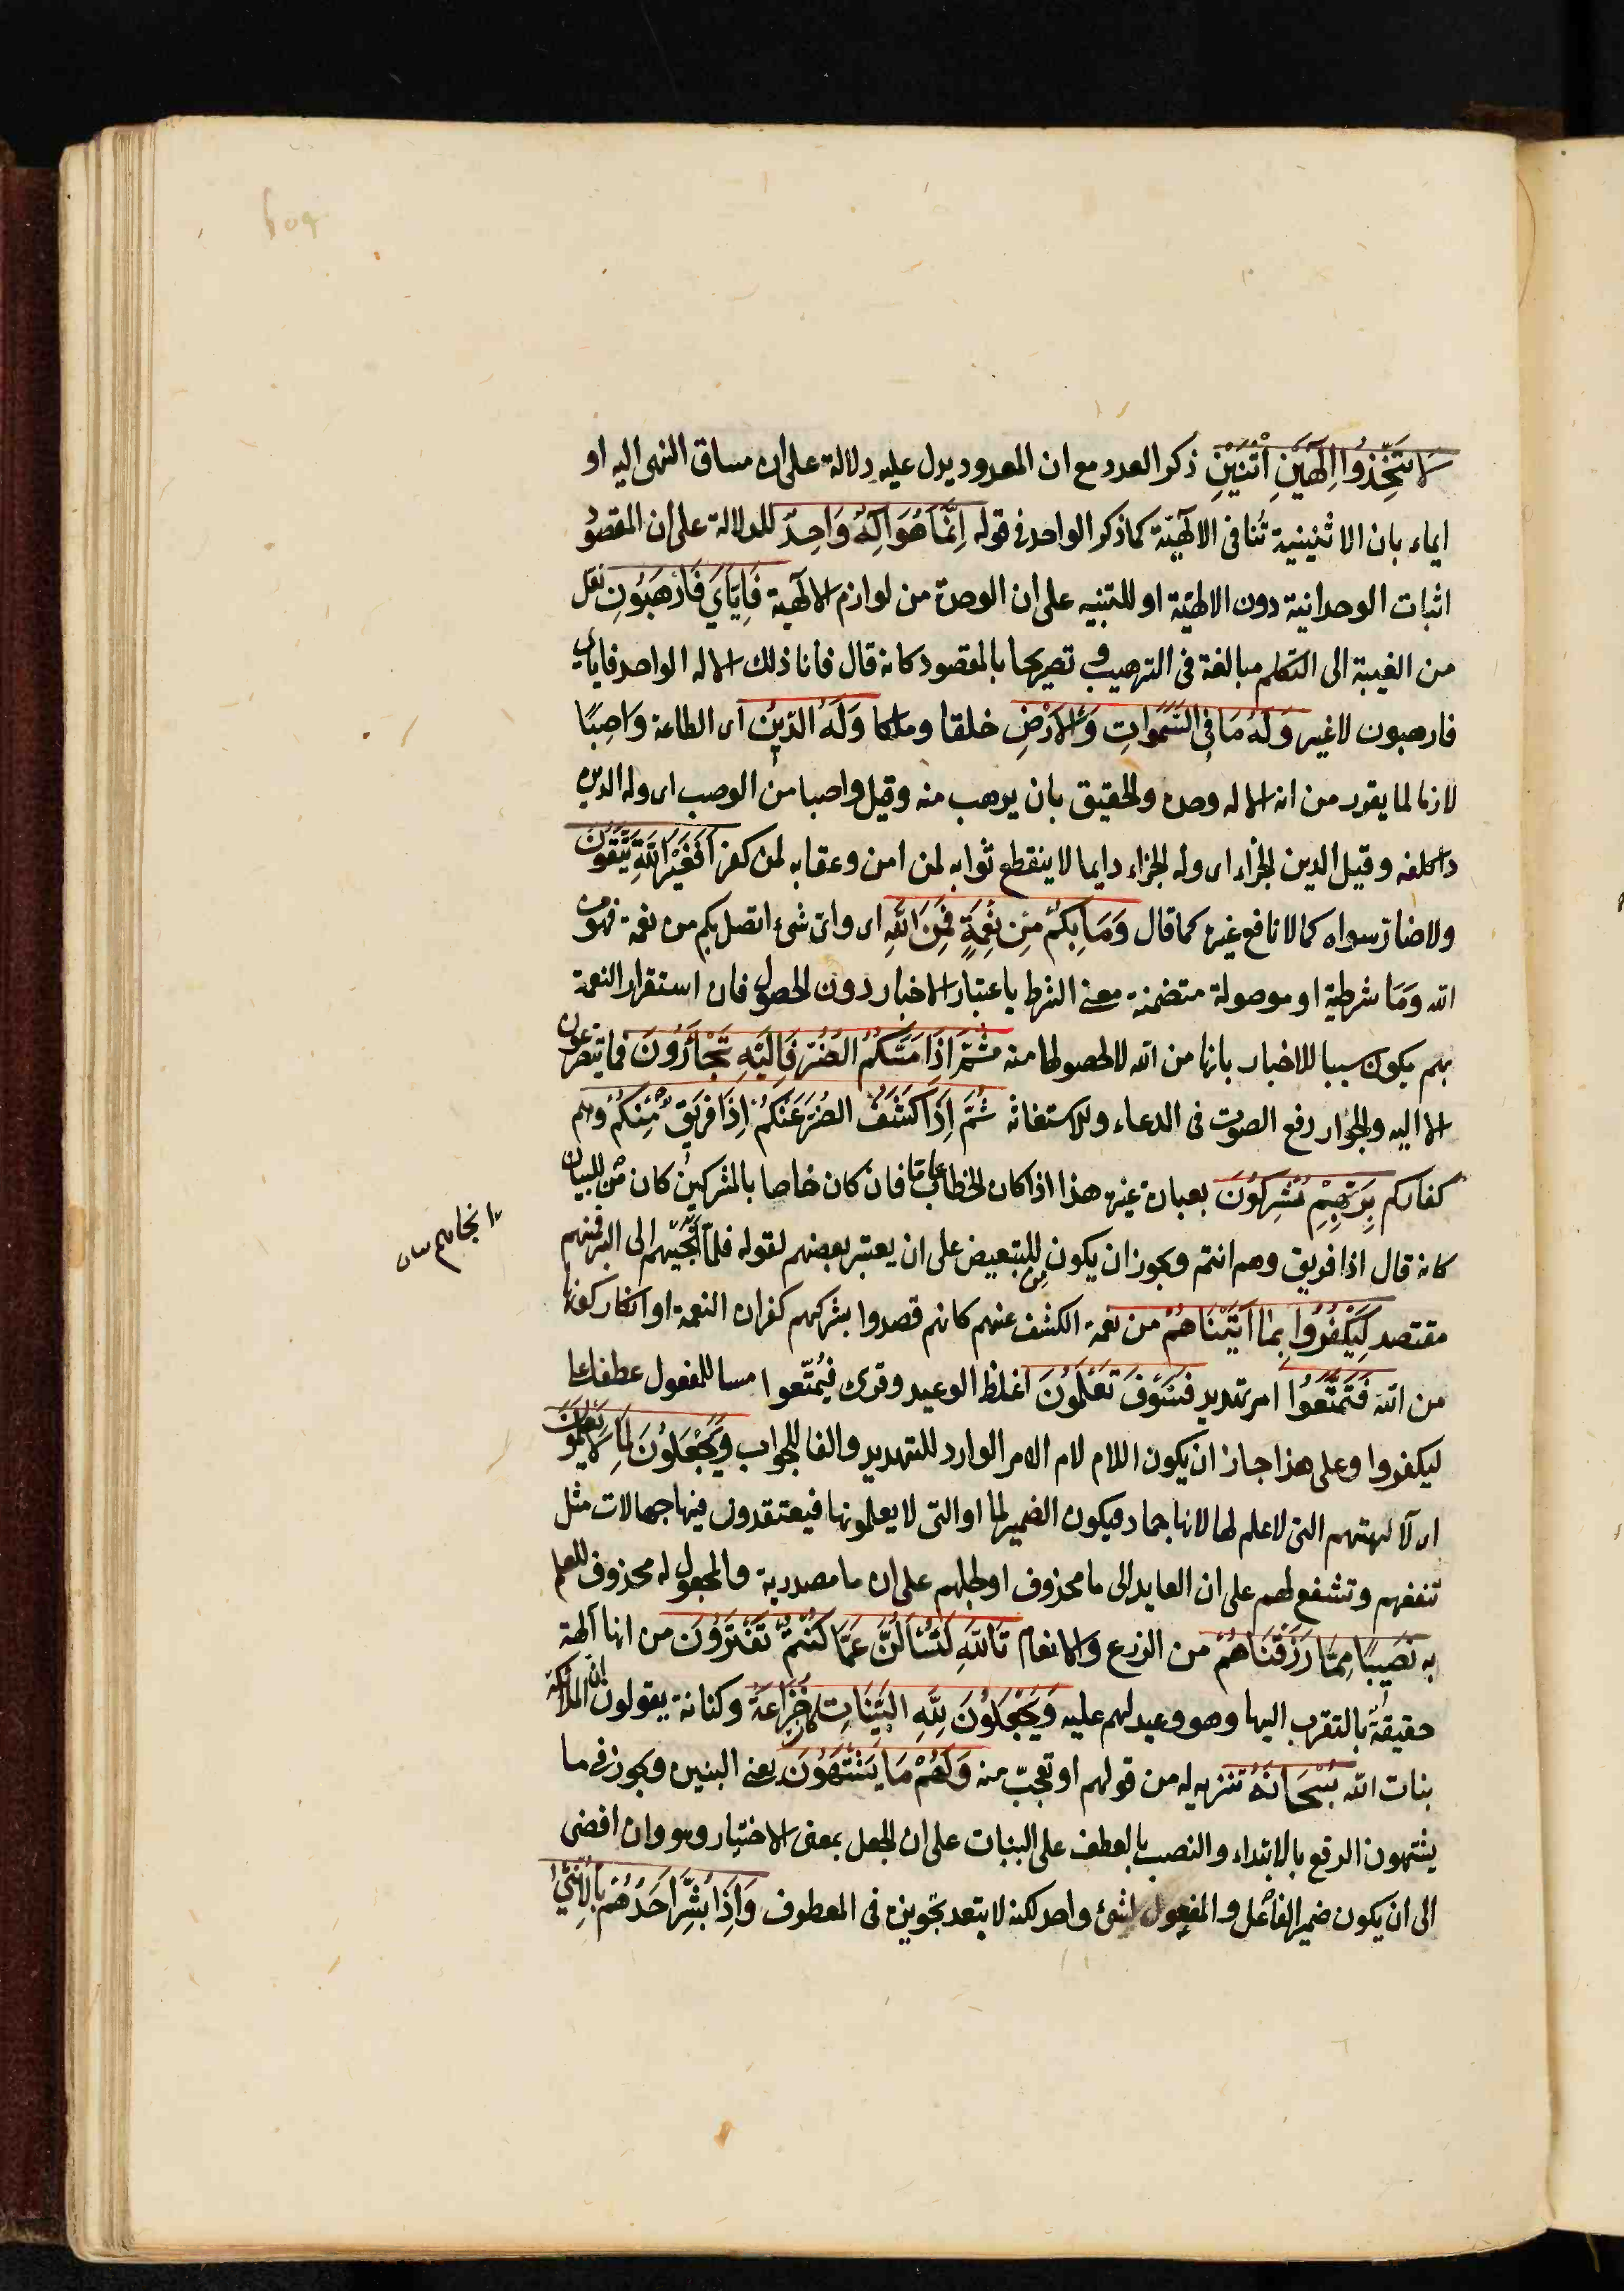 لَا تَتَّخِذُوا إِلَهَيْنِ اثْنَيْنِ ذكر العدد مع ان المعدود يدل عليه دلالة على ان مساق النهى اليه او
ايماء بان الاثنينية تنافى الالهيّة كما ذكر الواحد فى قوله إِنَّمَا هُوَ إِلَهٌ وَاحِدٌ للدلالة على ان المقصود
اثبات الوحدانية دون الالهيّة او للتنبيه على ان الوحدة من لوازم الالهية فَإِيَّايَ فَارْهَبُونِ نقل
من الغيبة الى التكلم مبالغة فى الترهيب و تصريحا بالمقصود كانه قال فانا ذلك الاله الواحد فاياى
فارهبون لا غير وَلَهُ مَا فِي السَّمَوَاتِ وَالْأَرْضِ خلقا وملكا وَلَهُ الدِّينُ اى الطاعة وَاصِبًا
لازما لما يقرر من انه الاله وحده والحقيق بان يرهب منه وقيل واصبا من الوصب اى وله الدين
ذا كلفه وقيل الدين الجزاء اى وله الجزاء دايما لا ينقطع ثوابه لمن امن وعقابه لمن كفر أَفَغَيْرَ اللَّهِ تَتَّقُونَ
ولا ضارّ سواه كما لا نافع غيره كما قال وَمَا بِكُمْ مِنْ نِعْمَةٍ فَمِنَ اللَّهِ اى واىّ شئ اتصل بكم من نعمة فهو من
الله وَمَا شرطية او موصولة متضمنة معنى الشرط باعتبار الاخبار دون الحصول فان استقرار النعمة
بهم يكون سببا للاخبار بانها من الله لا لحصولها منه ثُمَّ إِذَا مَسَّكُمُ الضُّرُّ فَإِلَيْهِ تَجْأَرُونَ فما تتضرعون
الا اليه والجؤار رفع الصوت فى الدعاء والاستغاثة ثُمَّ إِذَا كَشَفَ الضُّرَّ عَنْكُمْ إِذَا فَرِيقٌ مِنْكُمْ وهم
كفاركم بِرَبِّهِمْ يُشْرِكُونَ بعبادة غيره هذا اذا كان الخطاب عاما فان كان خاصا بالمشركين كان من للبيان
كانه قال اذا فريق وهم انتم ويجوز ان يكون من للتبعيض على ان يعتبر بعضهم لقوله فلمّا نجّيهم الى البر فمنهم
مقتصد لِيَكْفُرُوا بِمَا آتَيْنَاهُمْ من نعمة الكشف عنهم كانهم قصدوا بشركهم كفران النعمة او انكار كونها
من الله فَتَمَتَّعُوا امر تهديد فَسَوْفَ تَعْلَمُونَ اغلظ الوعيد وقرى فيُمتّعوا مبنيا للمفعول عطفا على
ليكفروا وعلى هذا جاز ان يكون اللام لام الامر الوارد للتهديد والفا للجواب وَيَجْعَلُونَ لِمَا لَا يَعْلَمُونَ
اى لآلهتهم التى لا علم لها لانها جماد فيكون الضمير لما او التى لا يعلمونها فيعتقدون فيها جهالات مثل
تنفعهم وتشفع لهم على ان العايد الى ما محذوف او لجهلهم على ان ما مصدرية والمجعول له محذوف للعلم
به نَصِيبًا مِمَّا رَزَقْنَاهُمْ من الزرع والانعام تَاللَّهِ لَتُسْأَلُنَّ عَمَّا كُنْتُمْ تَفْتَرُونَ من انها آلهة
حقيقةً بالتقرب اليها وهو وعيد لهم عليه وَيَجْعَلُونَ لِلَّهِ الْبَنَاتِ كان خزاعة وكنانة يقولون ان الملائكة
بنات الله سُبْحَانَهُ تنزيه له من قولهم او تعجّب منه وَلَهُمْ مَا يَشْتَهُونَ يعنى البنين ويجوز فى ما
يشتهون الرفع بالابتداء والنصب بالعطف على البنات على ان الجعل بمعنى الاختيار وهو وان افضى
الى ان يكون ضمير الفاعل و المفعول لشئ واحد لكنه لا يتعد تجويزه فى المعطوف وَإِذَا بُشِّرَ أَحَدُهُمْ بِالْأُنْثَى